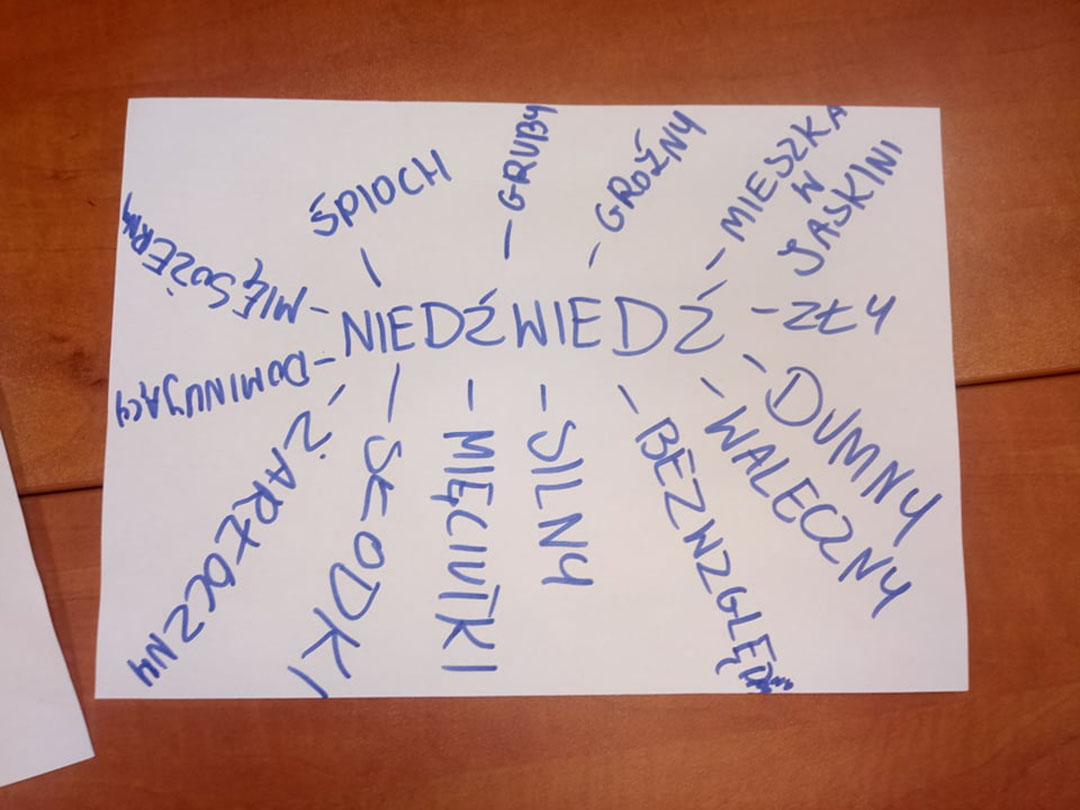 NIEDŹWIEDŹ
ŚPIOCH
GRUBY
GROŹNY
MIESZKA
W
JASKINI
ZŁY
DUMNY
WALECZNY
BEZWZGLĘDNY
SILNY
MIĘCIUTKI
SŁODKI
ŻARŁOCZNY
DOMINUJĄCY
MIĘSOŻERNY